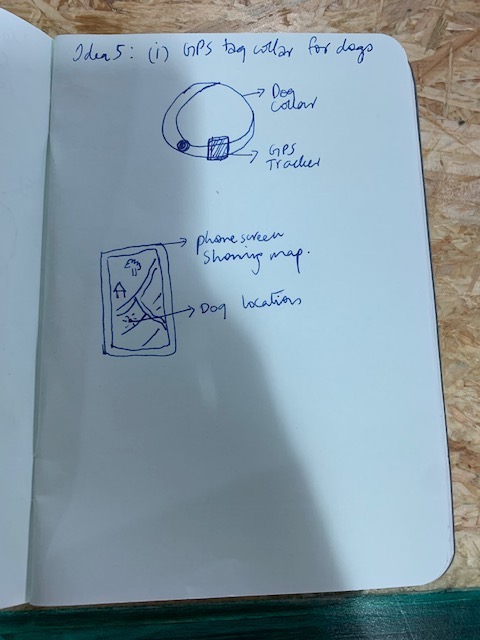 Ideas: (i) GPS tag collar for dogs
Dog
collar
GPS
Tracker
phone screen
showing map.
Dog location